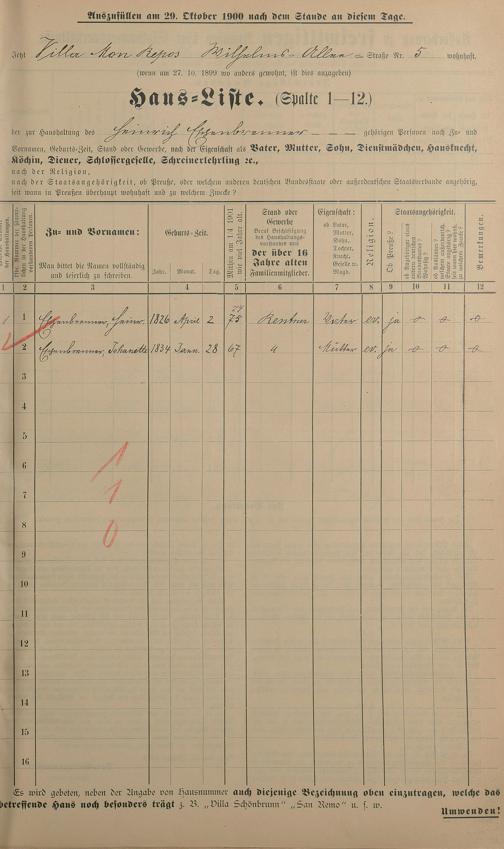 Auszufüllen am 29. Oktober 1900 nach dem Stande an diesem Tage.
Jetzt Villa Mon Repos Wilhelms-Allee - Straße Nr. 5 wohnhaft.
(wenn am 27. 10. 1899 wo anders gewohnt, ist dies anzugeben)
Haus-Liste. (Spalte 1—12.)
der zur Haushaltung des Heinrich Eppenbrenner — — — gehörigen Personen nach Zu- und
Vornamen, Geburts-Zeit, Stand oder Gewerbe, nach der Eigenschaft als Vater, Mutter, Sohn, Dienstmädchen, Hausknecht,
Köchin, Diener, Schlossergeselle, Schreinerlehrling ꝛc.,
nach der Religion,
nach der Staatsangehörigkeit, ob Preuße, oder welchem anderen deutschen Bundesstaate oder außerdeutschen Staatsverbande angehörig,
seit wann in Preußen überhaupt wohnhaft und zu welchem Zweck?
Zu- und Vornamen:
Man bittet die Namen vollständig
und leserlich zu schreiben.
Geburts-Zeit.
Jahr. Monat. Tag.
Mithin am 1/4 1901
wie viel Jahre alt.
Stand oder
Gewerbe
der über 16
Jahre alten
Familienmitglieder.
Eigenschaft:
ob Vater,
Mutter,
Sohn,
Tochter,
Knecht,
Geselle w.
Magd.
Religion.
Staatsangehörigkeit.
Ob Preuße?
Bemerkungen.
1 2 3 4 5 6 7 8 9 10 11 12
1 1 Eppenbrenner, Heinr. 1826 April 2 75 Rentner Vater ev. ja o o o
2 Eppenbrenner, Johanette 1834 Jann. 28 67 " Mutter ev. ja o o o
3
4
5
6
7
8
9
10
11
12
13
14
15
16
1
1
0
Es wird gebeten, neben der Angabe von Hausnummer auch diejenige Bezeichnung oben einzutragen, welche das
betreffende Haus noch besonders trägt z. B. „Villa Schönbrunn" „San Remo" u. s. w.
Umwenden!